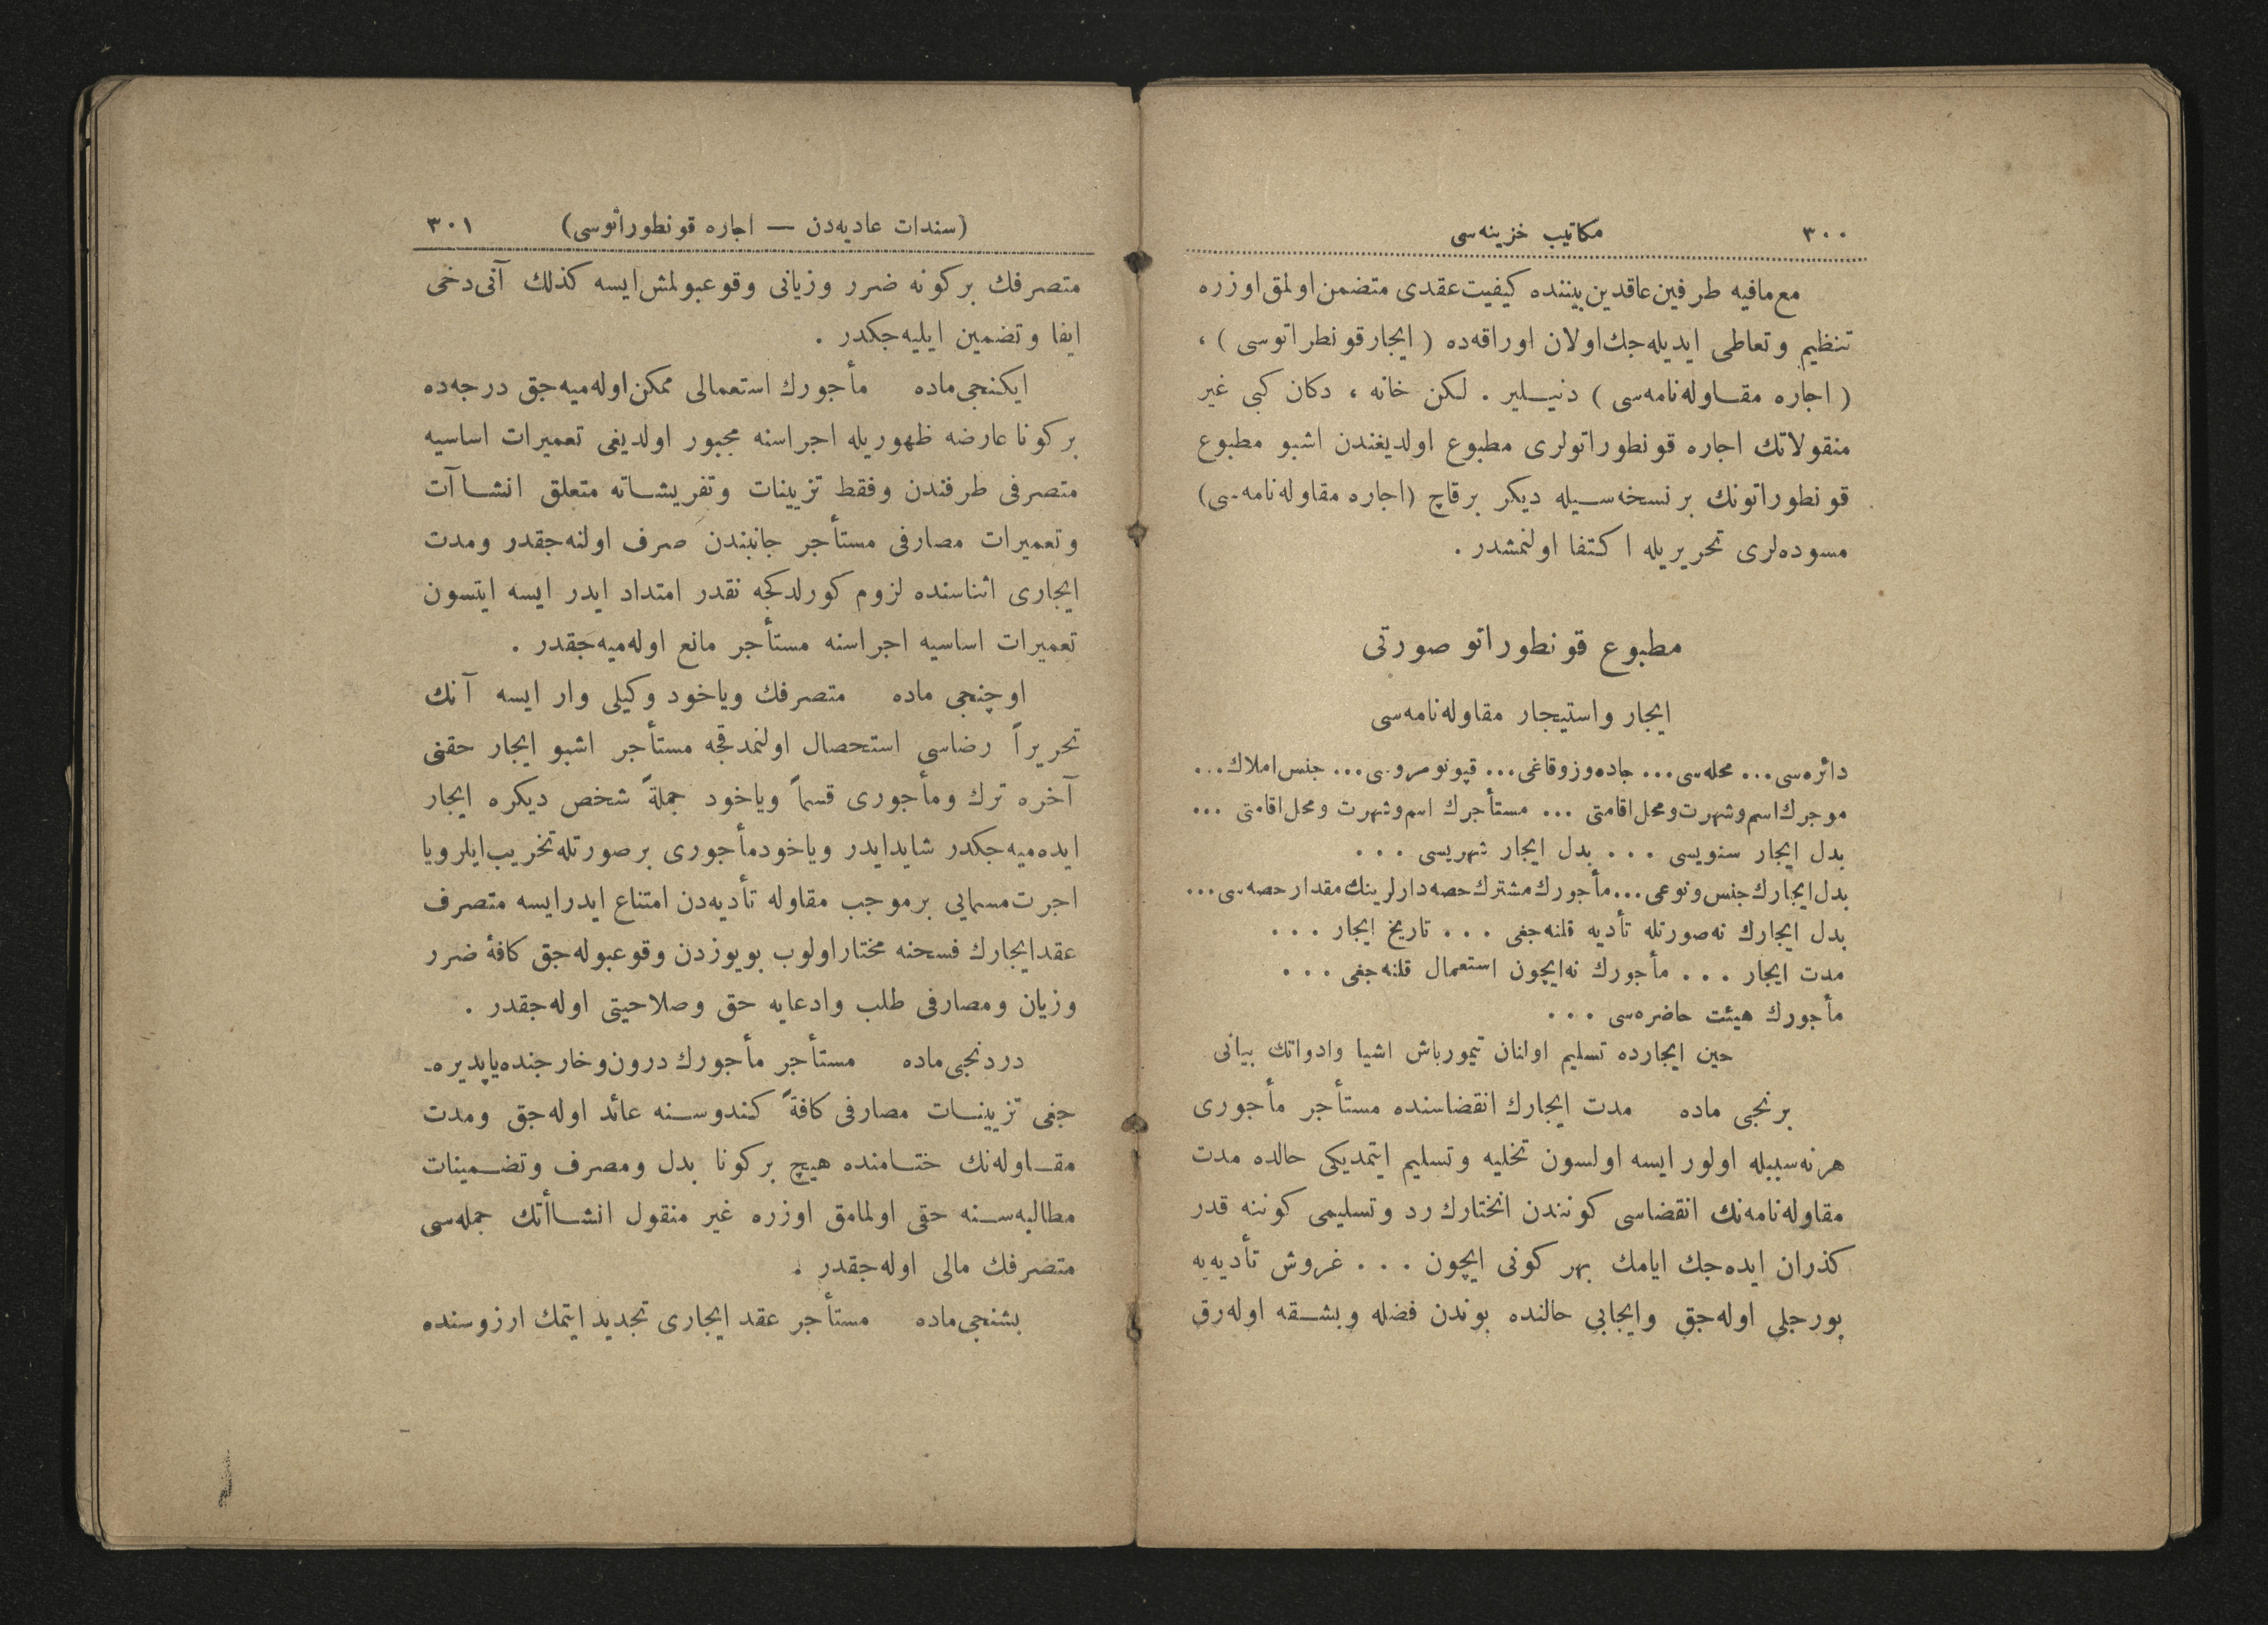 ٣٠٠ مكاتيب خزينه‌سى
مع‌مافيه طرفين‌عاقدين‌بيننده كيفيت‌عقدى متضمن‌اولمق‌اوزره
تنظيم وتعاطى ايديله‌جك‌اولان اوراقه‌ده ( ايجارقونطراتوسى ) ،
( اجاره مقاوله‌نامه‌سى ) دنيلير . لكن خانه ، دكان كبى غير
منقولاتك اجاره قونطوراتولرى مطبوع اولديغندن اشبو مطبوع
قونطوراتونك برنسخه‌سيله ديكر برقاچ (اجاره مقاوله‌نامه‌سى)
مسوده‌لرى تحريريله اكتفا اولنمشدر .
مطبوع قونطوراتو صورتى
ايجار واستيجار مقاوله‌نامه‌سى
دائره‌سى... محله‌سى... جاده‌وزوقاغى... قپونومروسى... جنس‌املاك...
موجرك‌اسم‌وشهرت‌ومحل‌اقامتى ... مستأجرك اسم‌وشهرت ومحل‌اقامتى ...
بدل ايجار سنويسى ... بدل ايجار شهريسى ...
بدل‌ايجارك‌جنس‌ونوعى... مأجورك‌مشترك‌حصه‌دارلرينك‌مقدارحصه‌سى...
بدل ايجارك نه‌صورتله تأديه قلنه‌جغى ... تاريخ ايجار ...
مدت ايجار ... مأجورك نه‌ايچون استعمال قلنه‌جغى ...
مأجورك هيئت حاضره‌سى ...
حين ايجارده تسليم اولنان تيمورباش اشيا وادواتك بيانى
برنجى ماده مدت ايجارك انقضاسنده مستأجر مأجورى
هرنه‌سببله اولور ايسه اولسون تخليه وتسليم ايتمديكى حالده مدت
مقاوله‌نامه‌نك انقضاسى كونندن انختارك رد وتسليمى كوننه قدر
كذران ايده‌جك ايامك بهر كونى ايچون ... غروش تأديه‌يه
بورجلى اوله‌جق وايجابى حالنده بوندن فضله وبشقه اوله‌رق
(سندات عاديه‌دن — اجاره قونطوراتوسى) ٣٠١
متصرفك بركونه ضرر وزيانى وقوعبولمش‌ايسه كذلك آنى‌دخى
ايفا وتضمين ايليه‌جكدر .
ايكنجى‌ماده مأجورك استعمالى ممكن‌اوله‌ميه‌جق درجه‌ده
بركونا عارضه ظهوريله اجراسنه مجبور اولديغى تعميرات اساسيه
متصرفى طرفندن وفقط تزيينات وتفريشاته متعلق انشاآت
وتعميرات مصارفى مستأجر جانبندن صرف اولنه‌جقدر ومدت
ايجارى اثناسنده لزوم كورلدكجه نقدر امتداد ايدر ايسه ايتسون
تعميرات اساسيه اجراسنه مستأجر مانع اوله‌ميه‌جقدر .
اوچنجى ماده متصرفك وياخود وكيلى وار ايسه آنك
تحريراً رضاسى استحصال اولنمدقجه مستأجر اشبو ايجار حقنى
آخره ترك ومأجورى قسماً وياخود جملةً شخص ديكره ايجار
ايده‌ميه‌جكدر شايدايدر وياخودمأجورى برصورتله‌تخريب‌ايلرويا
اجرت‌مسمايى برموجب مقاوله تأديه‌دن امتناع ايدرايسه متصرف
عقدايجارك فسخنه مختاراولوب بويوزدن وقوعبوله‌جق كافهٔ ضرر
وزيان ومصارفى طلب وادعايه حق وصلاحيتى اوله‌جقدر .
دردنجى‌ماده مستأجر مأجورك درون‌وخارجنده‌ياپديره‌-
جغى تزيينات مصارفى كافةً كندوسنه عائد اوله‌جق ومدت
مقاوله‌نك ختامنده هيچ بركونا بدل ومصرف وتضمينات
مطالبه‌سنه حقى اولمامق اوزره غير منقول انشاأتك جمله‌سى
متصرفك مالى اوله‌جقدر .
بشنجى‌ماده مستأجر عقد ايجارى تجديد ايتمك ارزوسنده